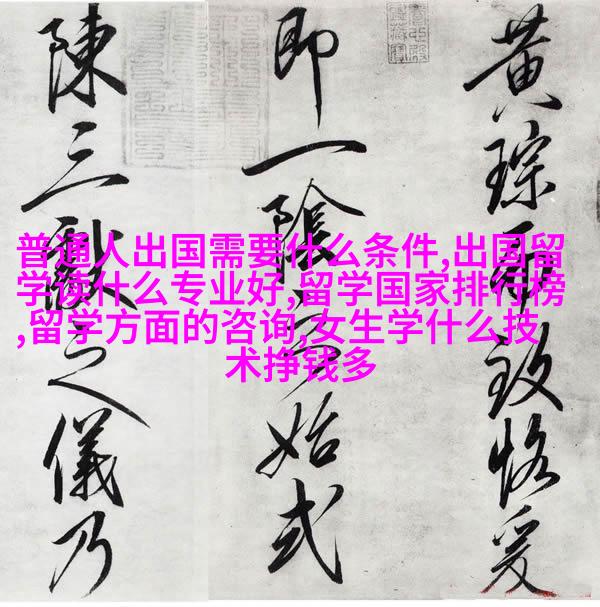 普通人出国需要什么条件,出国留
学读什么专业好,留学国家排行榜
,留学方面的咨询,女生学什么技
术挣钱多
黄琮致恪爰
即一陰始式
陳三獻之儀乃